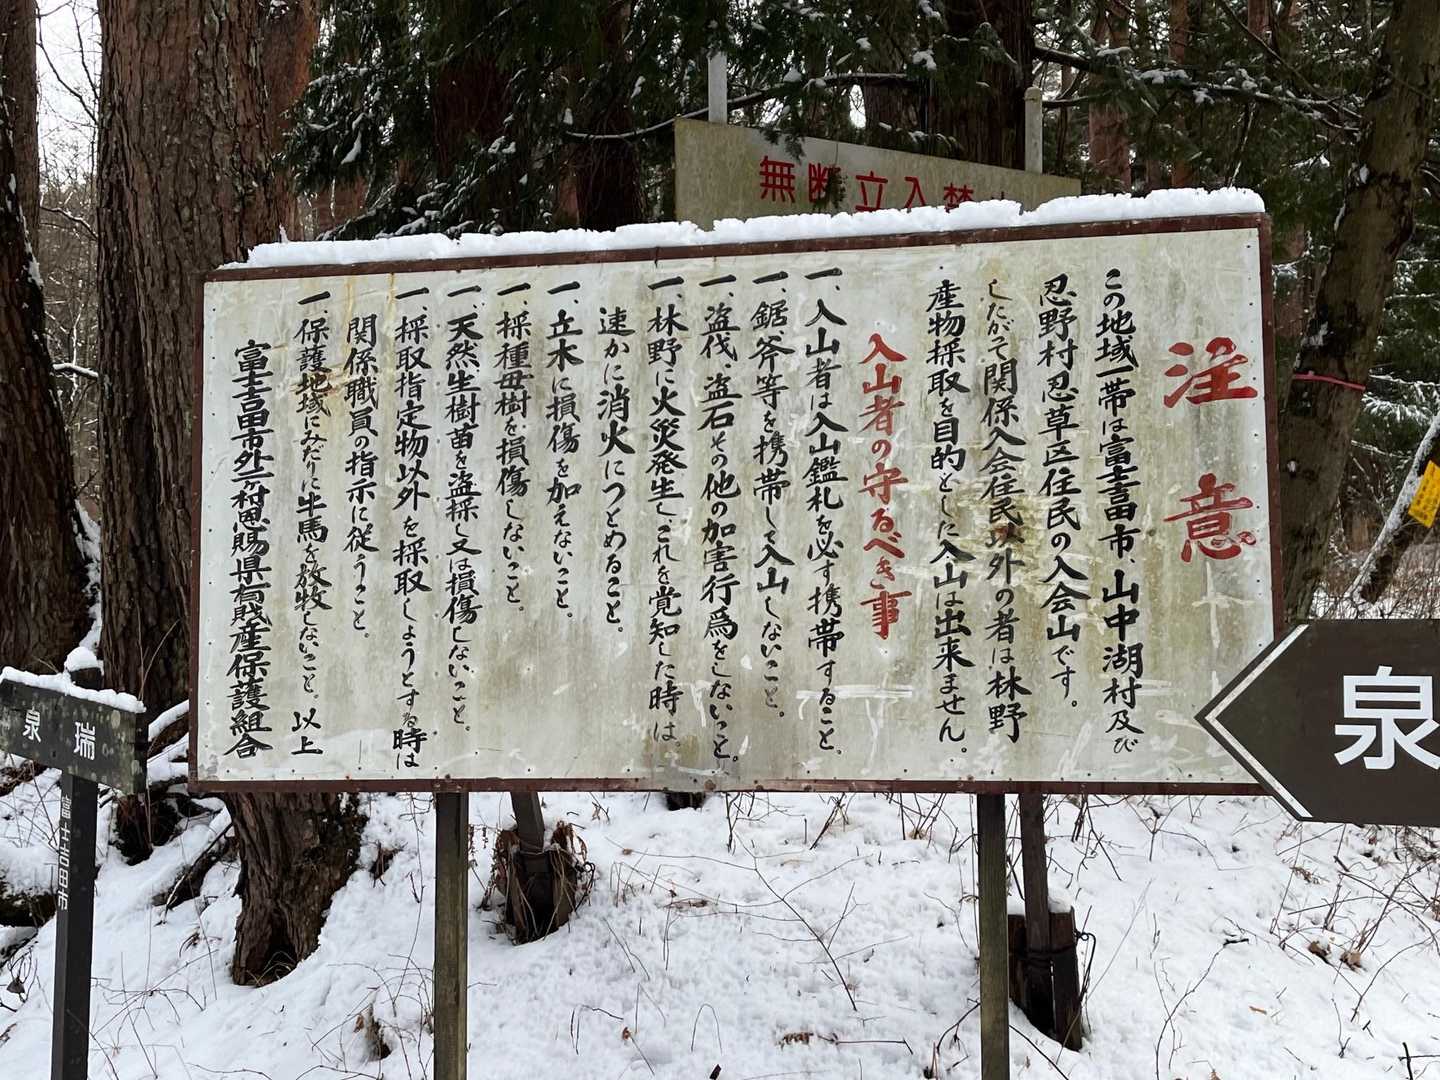 無断立入禁
注意
この地域一帯は富士吉田市、山中湖村及び
忍野村忍草区住民の入会山です。
したがそ関係入会住民以外の者は林野
産物採取を目的とした入山は出来ません。
入山者の守るべき事
一、入山者は入山鑑札を必す携帯すること。
一、鋸斧等を携帯して入山しないこと。
一、盗伐、盗石その他の加害行為をしないこと。
一、林野に火災発生し、これを覚知した時は。
速かに消火につとめること。
一、立木に損傷を加えないこと。
一、採種母樹を損傷しないこと。
一、天然生樹苗を盗採し又は損傷しないこと。
一、採取指定物以外を採取しようとする時は
関係職員の指示に従うこと。
一、保護地域にみだりに牛馬を放牧しないこと。以上
富士吉田市外二ヶ村恩賜県有財産保護組合
泉
泉瑞
富士吉田市